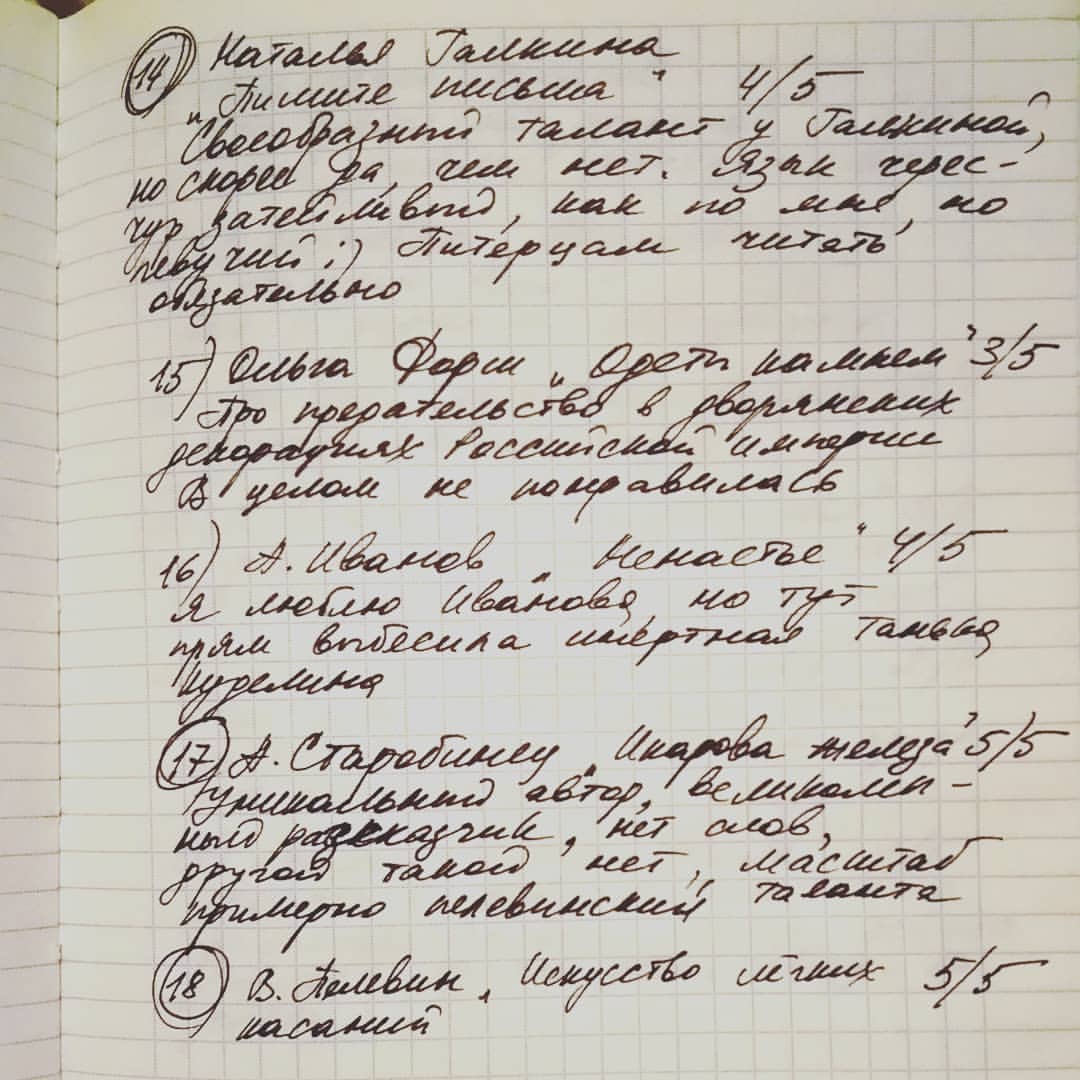 14) Наталья Галкина
„Пишите письма" 4/5
Своеобразный талант у Галкиной,
но скорее да, чем нет. Язык черес-
чур затейливый, как по мне, но
певучий :) Питерцам читать
обязательно
15) Ольга Форш „Одеты камнем" 3/5
Про предательство в дворянских
декорациях Российской империи
В целом не понравилась
16) А. Иванов „Ненастье" 4/5
Я люблю Иванова, но тут
прям выбесила инертная Танька
Куделина
17) А. Старобинец „Икарова железа" 5/5
Уникальный автор, великолеп-
ный рассказчик, нет слов,
другой такой нет, масштаб
примерно пелевинский таланта
18) В. Пелевин „Искусство лёгких 5/5
касаний